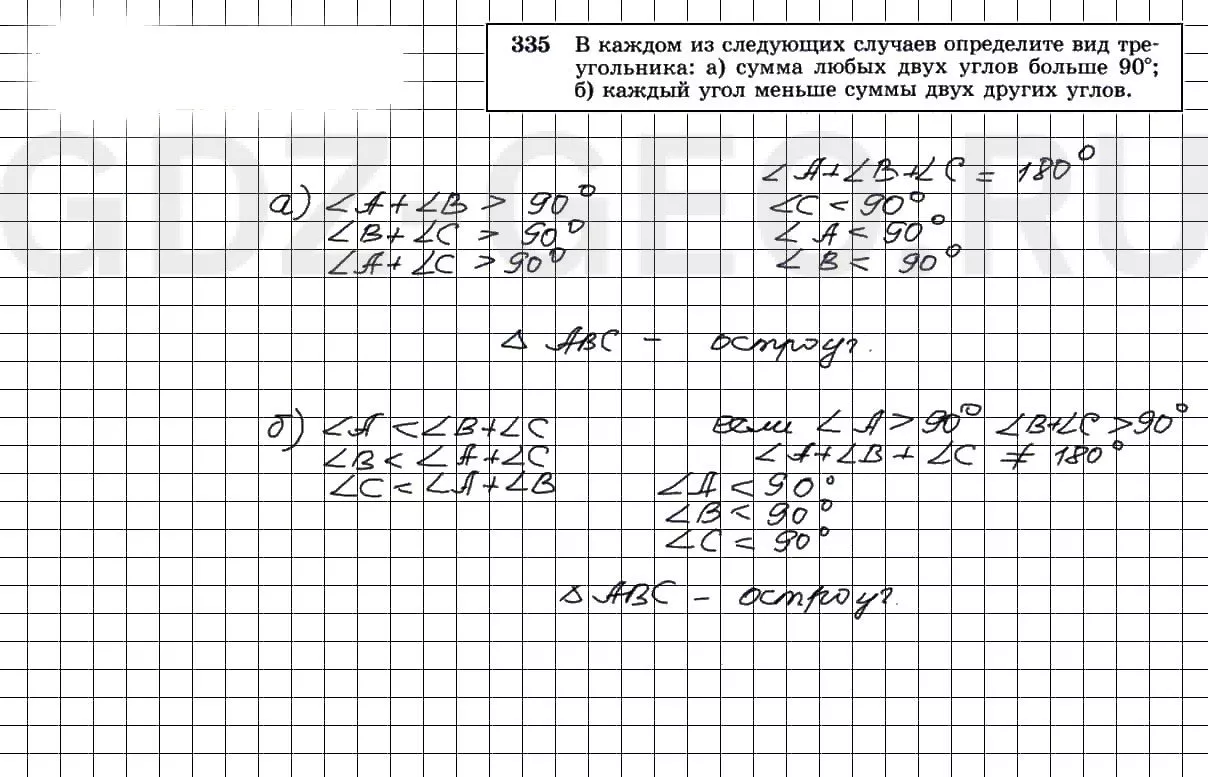 335 В каждом из следующих случаев определите вид тре-
угольника: а) сумма любых двух углов больше 90°;
б) каждый угол меньше суммы двух других углов.
GDZ-GEO.RU
∠A+∠B+∠C = 180°
а) ∠A+∠B > 90° ∠C < 90°
∠B+∠C > 90° ∠A < 90°
∠A+∠C > 90° ∠B < 90°
△ ABC – остроуг.
б) ∠A <∠B+∠C если ∠A>90° ∠B+∠C >90°
∠B < ∠A+∠C ∠A+∠B + ∠C ≠ 180°
∠C < ∠A+∠B ∠A < 90°
∠B < 90°
∠C < 90°
△ ABC – остроуг.